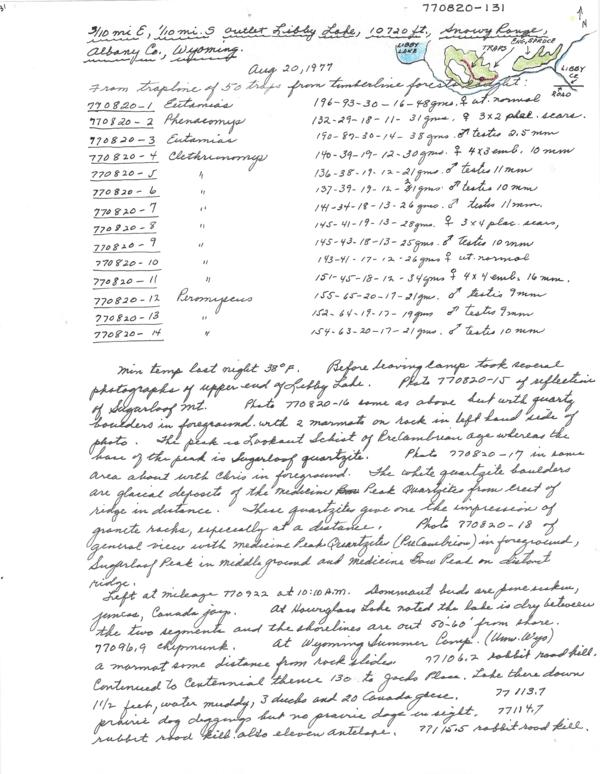 770820-131
3/10 mi E, 1/10 mi. S outlet Libby Lake, 10720 ft., Snowy Range,
Albany Co., Wyoming.
LIBBY LAKE
TRAPS
ENG. SPRUCE
LIBBY CR.
ROAD
N
Aug 20, 1977
From trapline of 50 traps from timberline forest caught:
770820-1 Eutamias 196-93-30-16-48gms. ♀ ut. normal
770820-2 Phenacomys 132-29-18-11-31gms. ♀ 3x2 plac. scars.
770820-3 Eutamias 190-87-30-14-38gms. ♂ testis 2.5 mm
770820-4 Clethrionomys 140-39-19-12-30gms. ♀ 4x3 emb. 10 mm
770820-5 " 136-38-19-12-21gms. ♂ testis 11 mm
770820-6 " 137-39-19-12-21gms. ♂ testes 10 mm
770820-7 " 141-34-18-13-26gms. ♂ testes 11mm.
770820-8 " 145-41-19-13-28gms. ♀ 3x4 plac. scars,
770820-9 " 145-43-18-13-25gms. ♂ testes 10 mm
770820-10 " 143-41-17-12-26gms ♀ ut. normal
770820-11 " 151-45-18-12-34gms ♀ 4x4 emb. 16 mm.
770820-12 Peromyscus 155-65-20-17-21gms. ♂ testis 9mm
770820-13 " 152-64-19-17-19gms ♂ testes 9mm
770820-14 " 154-63-20-17-21gms. ♂ testes 10 mm
Min temp last night 38°F. Before leaving camp took several
photographs of upper end of Libby Lake. Photo 770820-15 of reflection
of Sugarloaf Mt. Photo 770820-16 same as above but with quartz
boulders in foreground with 2 marmots on rock in left hand side of
photo. The peak is Lookout Schist of PreCambrian age whereas the
base of the peak is Sugarloaf quartzite. Photo 770820-17 in same
area about with Chris in foreground. The white quartzite boulders
are glacial deposits of the Medicine Peak Quartzites from crest of
ridge in distance. These quartzites give one the impression of
granite rocks, especially at a distance. Photo 770820-18 of
general view with Medicine Peak Quartzites (PreCambrian) in foreground,
Sugarloaf Peak in middle ground and Medicine Bow Peak on distant
ridge.
Left at mileage 770922 at 10:10 A.M. Dominant birds are pine siskin,
juncos, Canada jay. At Hourglass Lake noted the lake is dry between
the two segments and the shorelines are out 50-60' from shore.
77096.9 chipmunk. At Wyoming Summer Camp. (Univ. Wyo)
a marmot some distance from rock slides. 77106.2 rabbit road kill.
Continued to Centennial thence 130 to Place. Lake there down
1 1/2 feet, water muddy, 3 ducks and 20 Canada geese. 77113.7
prairie dog diggings but no prairie dogs in sight. 77114.7
rabbit road kill also eleven antelope. 77115.5 rabbit road kill.